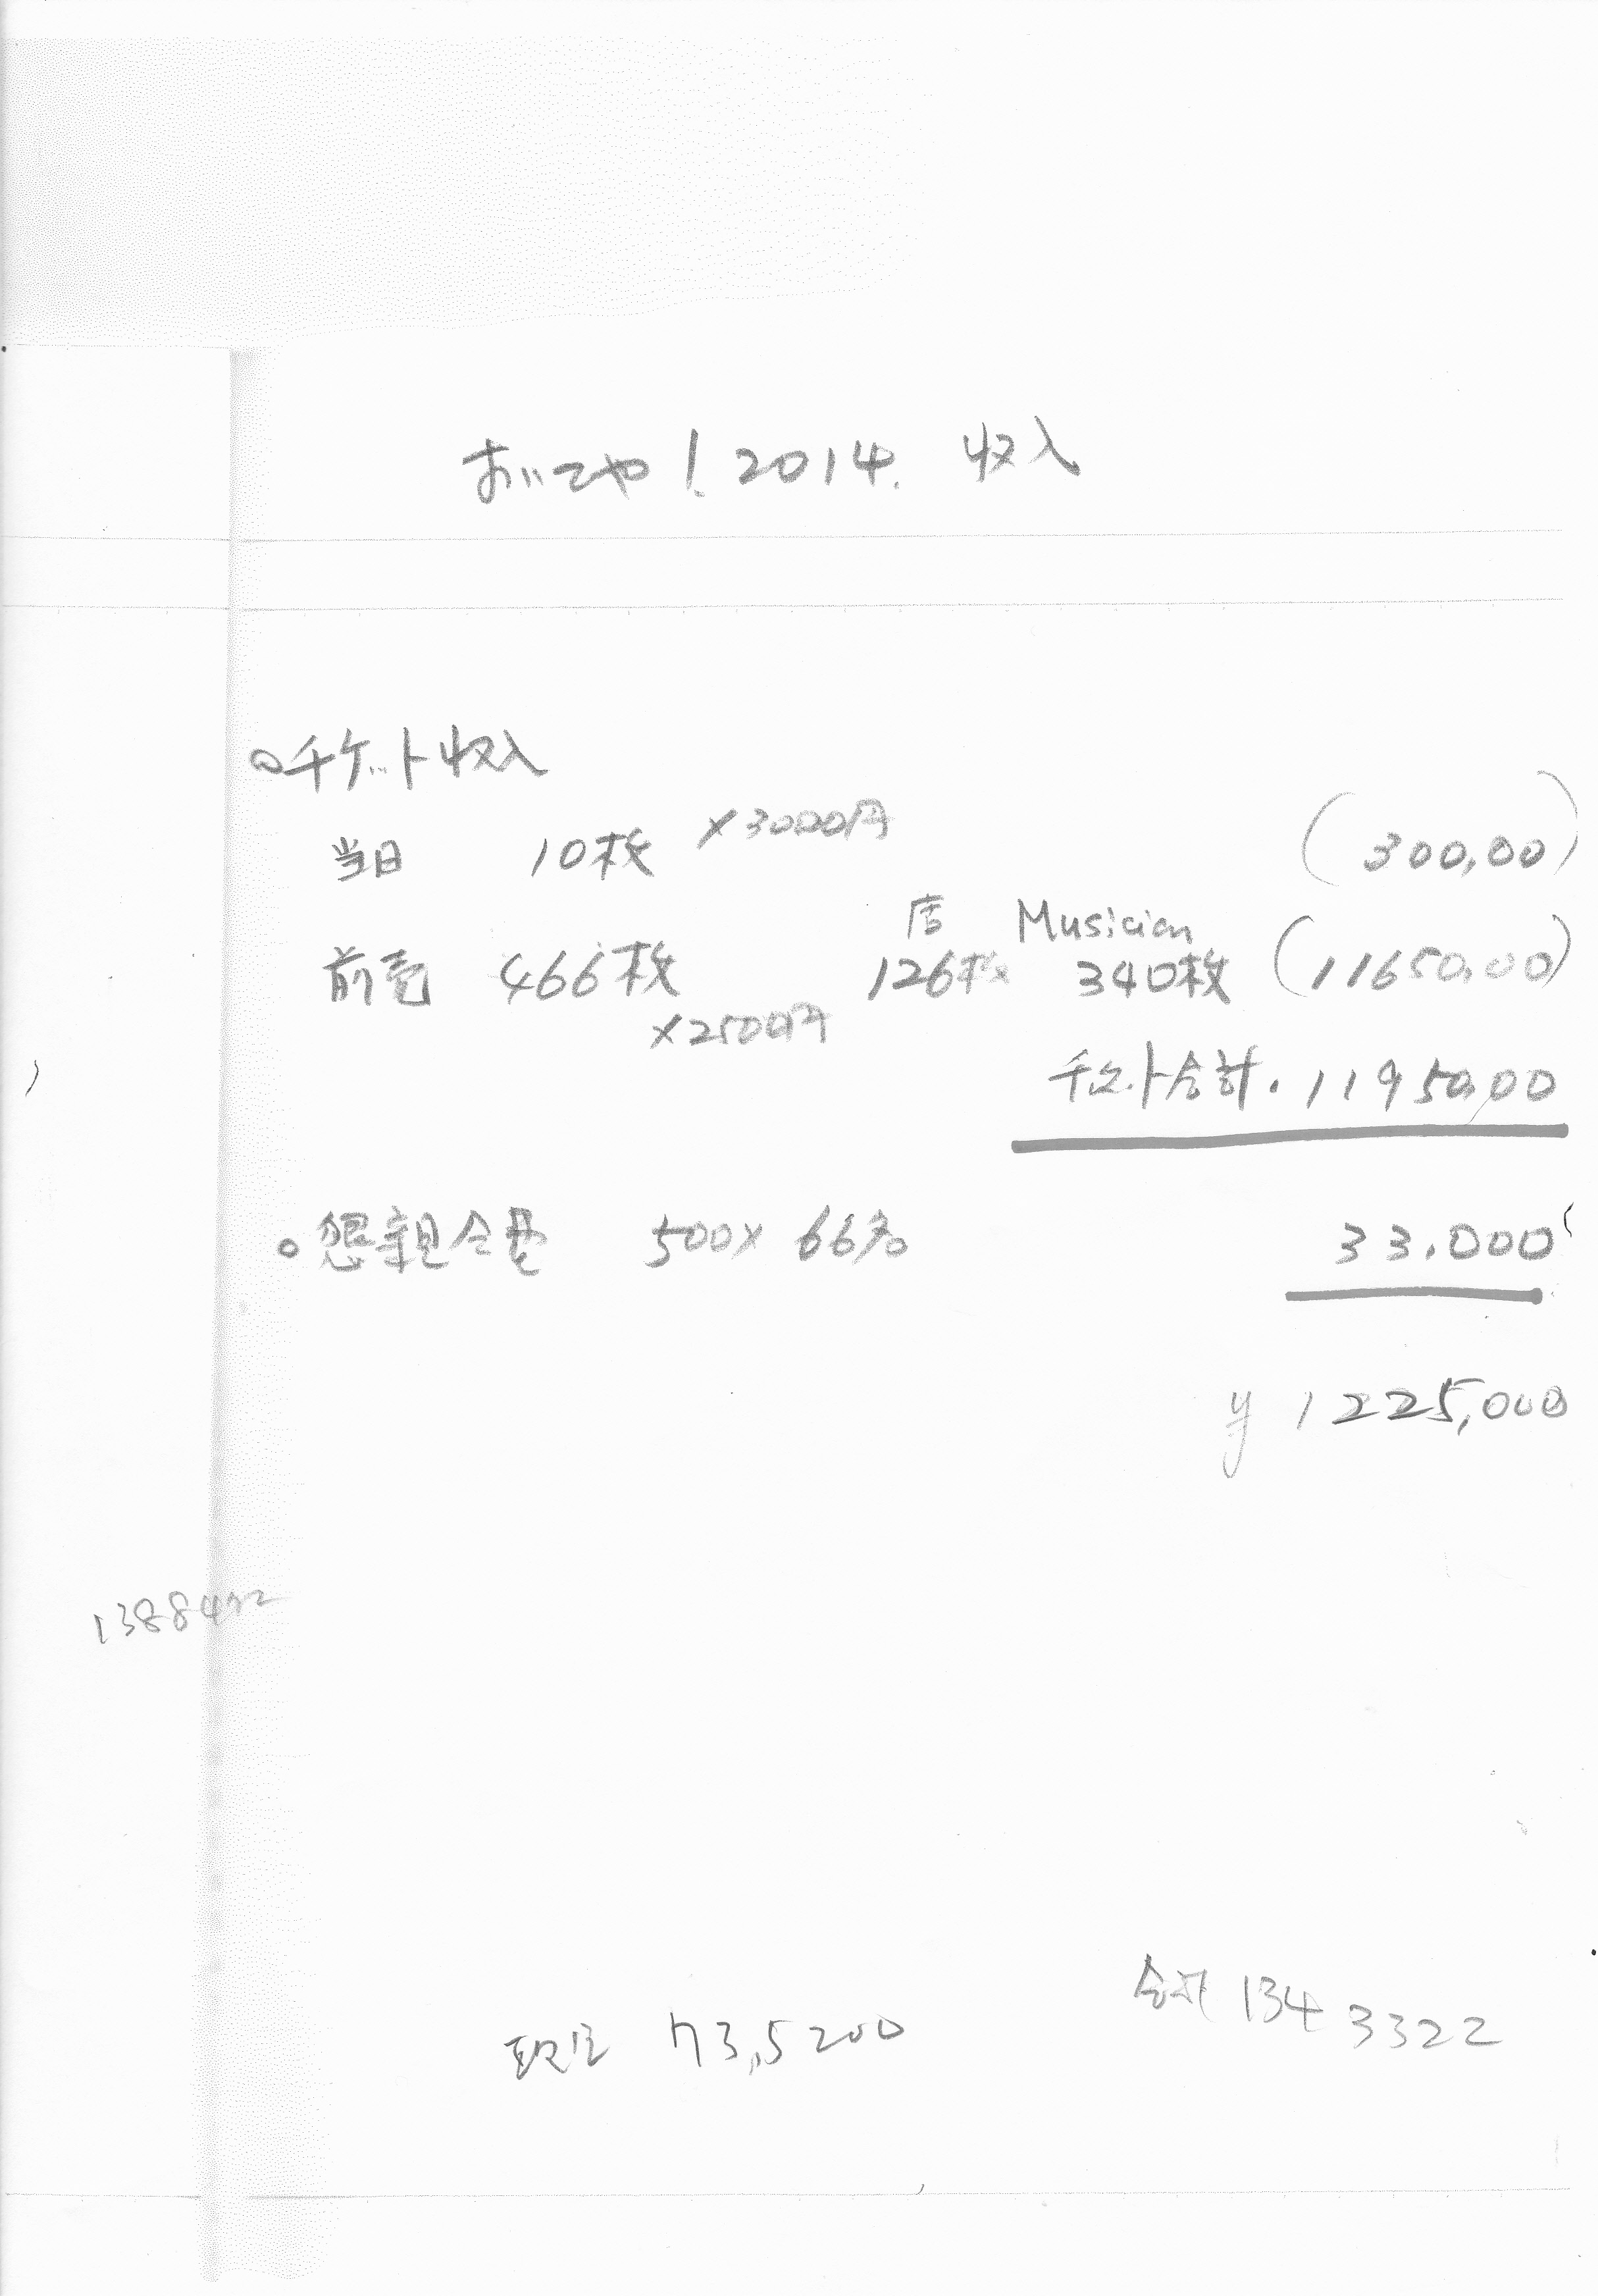 おいでや!2014. 収入
○チケット収入
当日 10枚 ×3000円 (300,00)
店 Musician
前売 466枚 126枚 340枚 (11650,00)
×2500円
チケット合計. 11950,00
○懇親会費 500× 66名 33.000
¥ 1225,000
1388492
合計 1343322
現金 73,5200